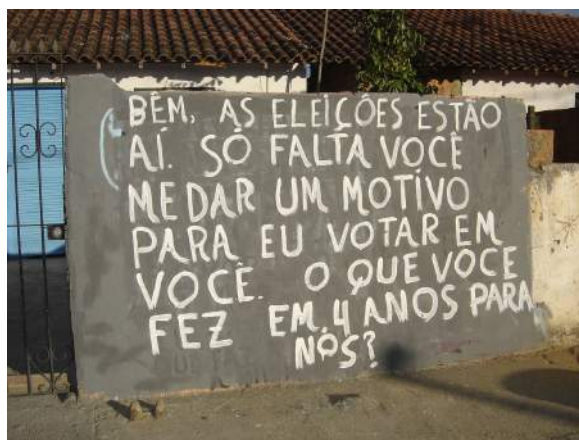 BÊM, AS ELEIÇÕES ESTÃO
AÍ. SÓ FALTA VOCÊ
ME DAR UM MOTIVO
PARA EU VOTAR EM
VOCÊ. O QUE VOCE
FEZ EM. 4 ANOS PARA
NÓS?